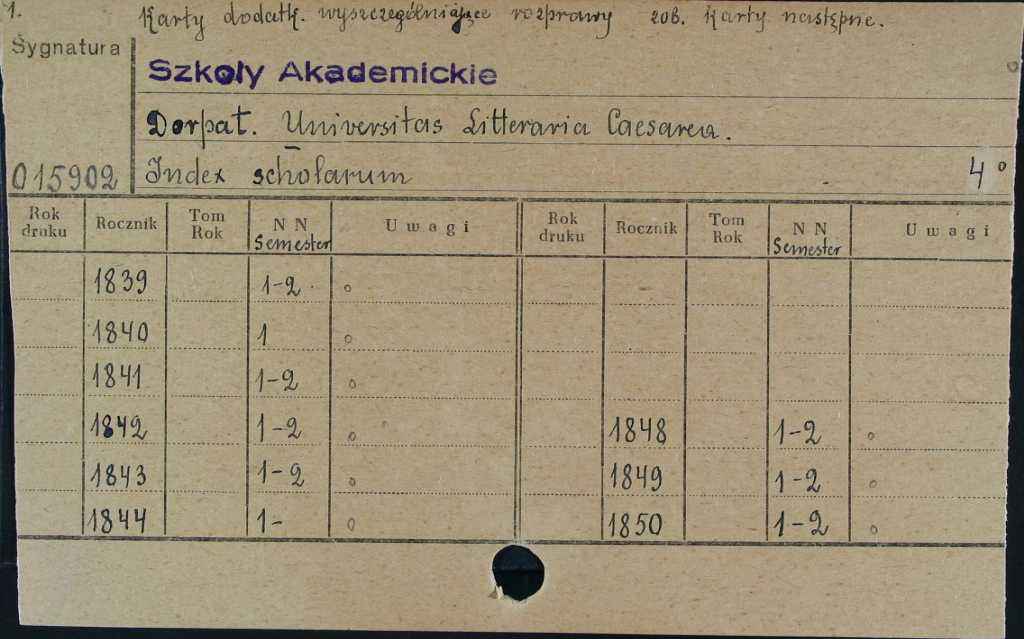 1. Karty dodatk. wyszczególniające rozprawy zob. Karty następne.
Sygnatura
Szkoły Akademickie
Dorpat. Universitas Litteraria Caesarea.
015902 Index scholarum 4°
Rok druku Rocznik Tom Rok N N Semester Uwagi Rok druku Rocznik Tom Rok N N Semester Uwagi
1839 1-2 o
1840 1 o
1841 1-2 o
1842 1-2 o 1848 1-2 o
1843 1-2 o 1849 1-2 o
1844 1- o 1850 1-2 o